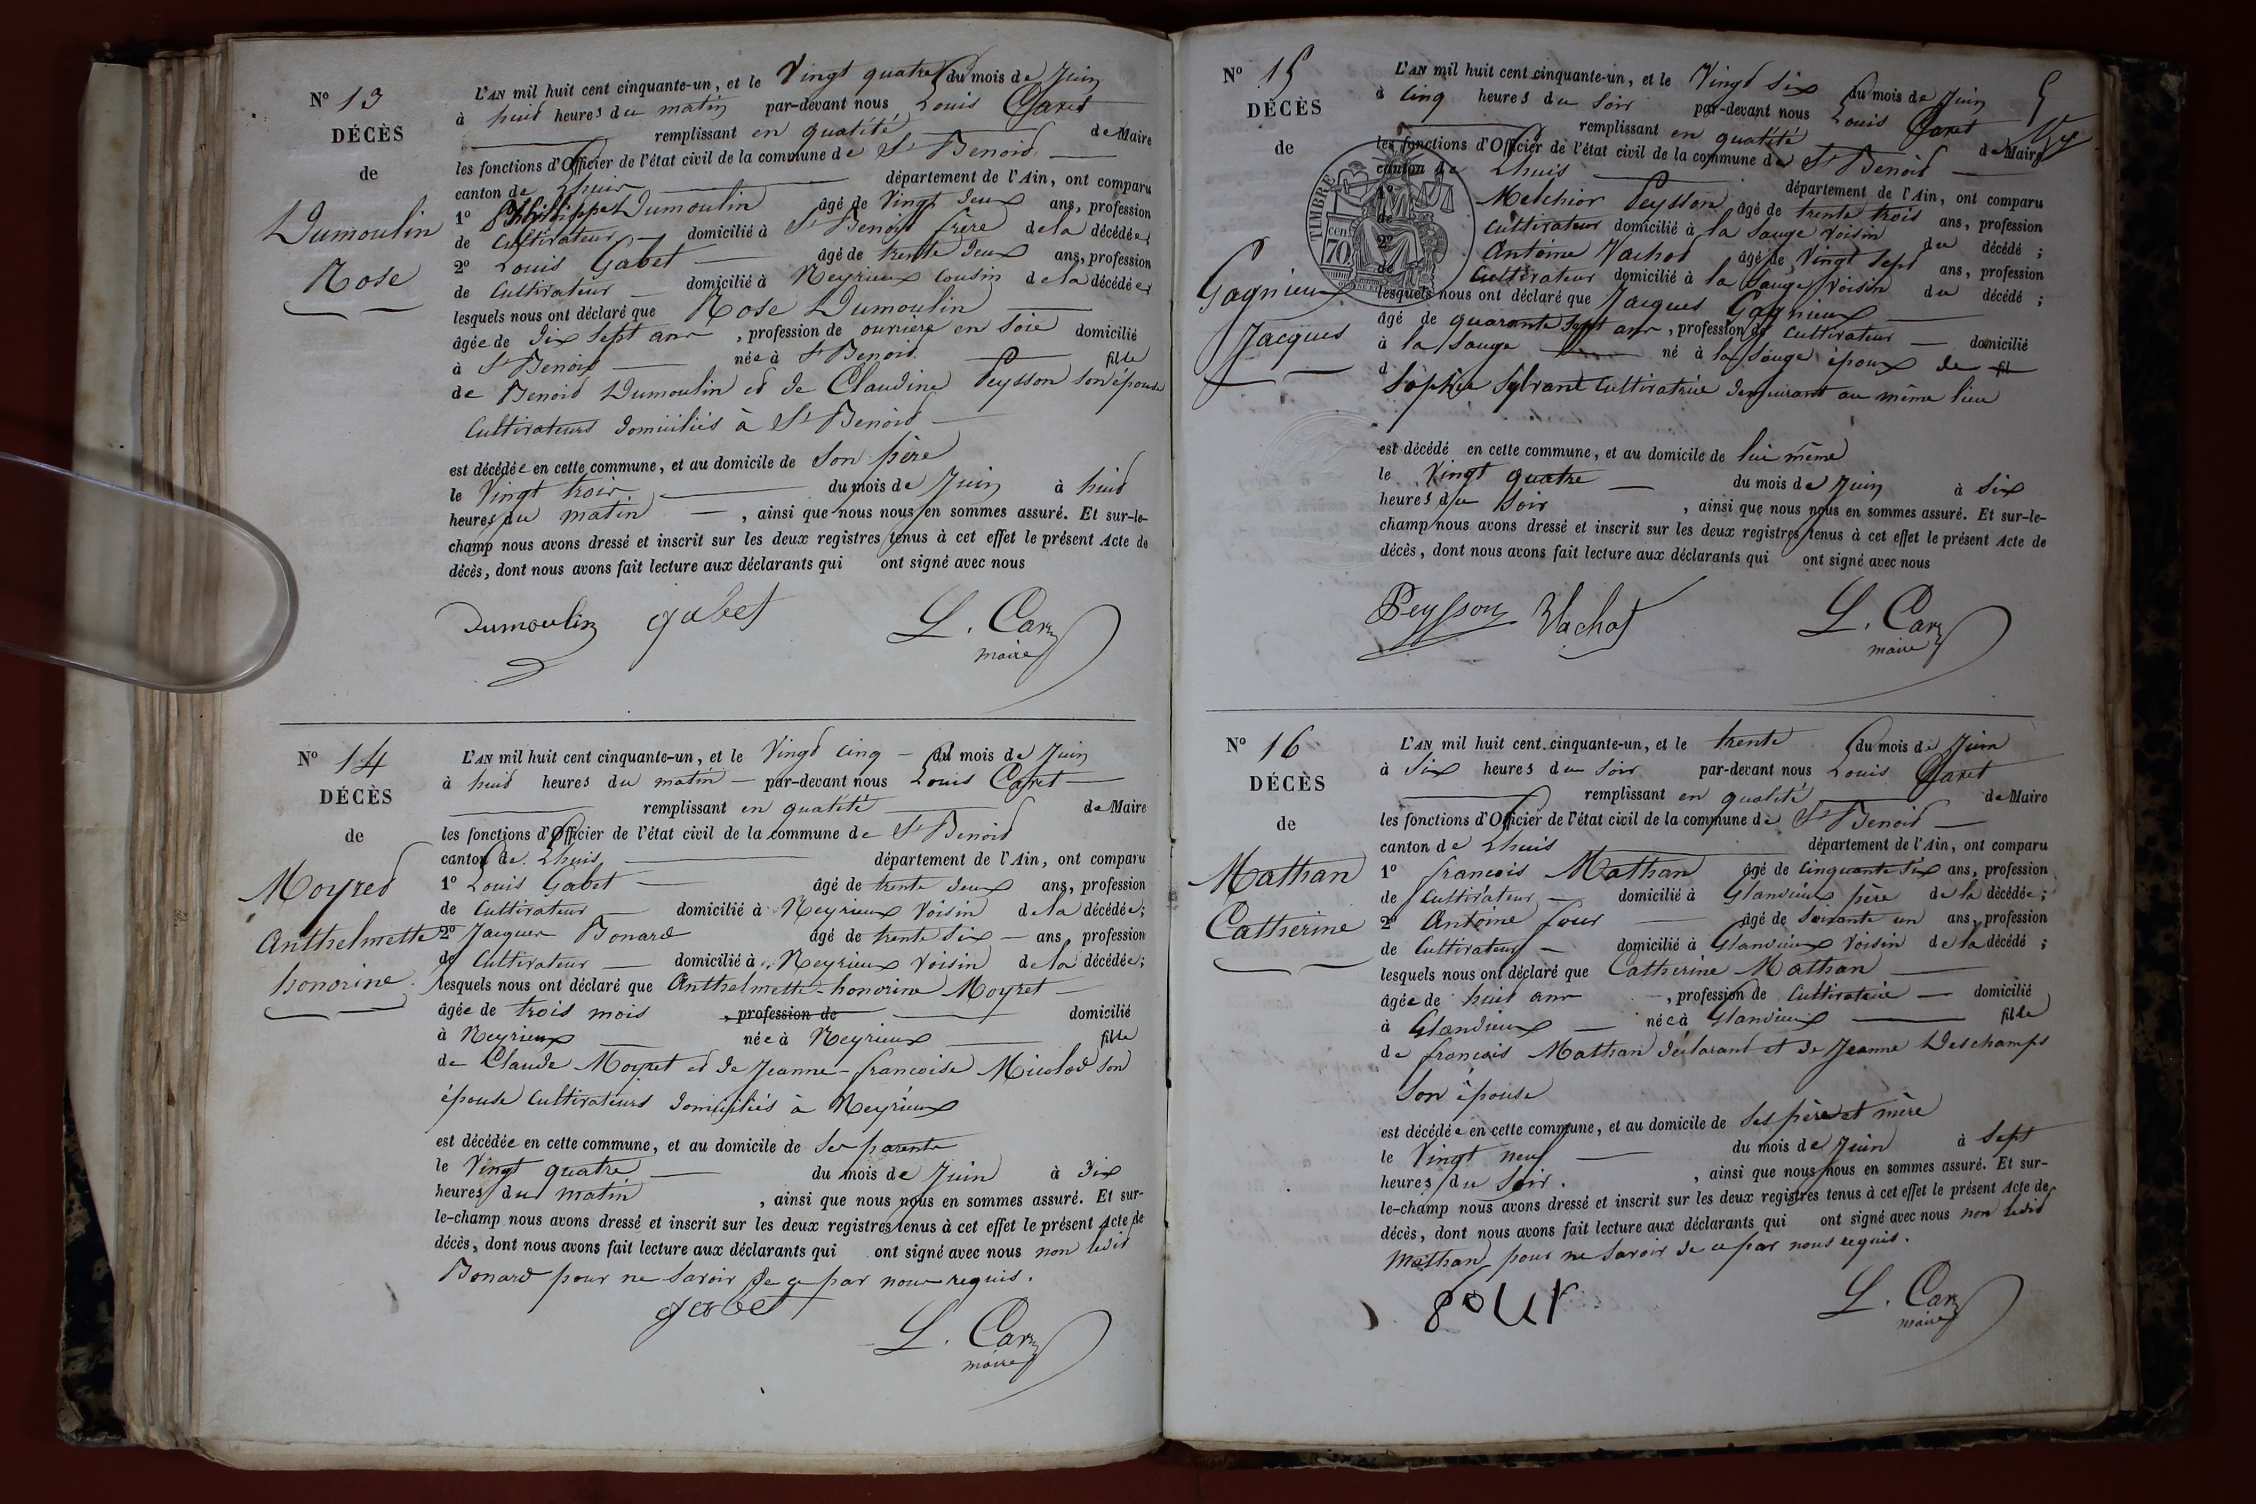 N° 13
DÉCÈS
de
Dumoulin
Rose
L'AN mil huit cent cinquante-un, et le Vingt quatre du mois de Juin
à huit heures du matin par-devant nous Louis Caret
remplissant en qualité de Maire
les fonctions d'Officier de l'état civil de la commune de St Benoit
canton de Lhuis département de l'Ain, ont comparu
1° Philippe Dumoulin âgé de Vingt deux ans, profession
de Cultivateur domicilié à St Benoit frère de la décédée;
2° Louis Gabet âgé de trente deux ans, profession
de Cultivateur domicilié à Neyrieux Cousin de la décédée;
lesquels nous ont déclaré que Rose Dumoulin
âgée de dix sept ans, profession de ouvrière en Soie domicilié
à St Benoit née à St Benoit fille
de Benoit Dumoulin et de Claudine Peysson son épouse
Cultivateurs domiciliés à St Benoit
est décédée en cette commune, et au domicile de Son père
le Vingt trois du mois de Juin à huit
heures du matin, ainsi que nous nous en sommes assuré. Et sur-le-
champ nous avons dressé et inscrit sur les deux registres tenus à cet effet le présent Acte de
décès, dont nous avons fait lecture aux déclarants qui ont signé avec nous
Dumoulin gabet L. Caret
maire
N° 14
DÉCÈS
de
Moyret
Anthelmette
honorine.
L'AN mil huit cent cinquante-un, et le Vingt cinq du mois de Juin
à huit heures du matin par-devant nous Louis Caret
remplissant en qualité de Maire
les fonctions d'Officier de l'état civil de la commune de St Benoit
canton de Lhuis département de l'Ain, ont comparu
1° Louis Gabet âgé de trente deux ans, profession
de Cultivateur domicilié à Neyrieux Voisin de la décédée;
2° Jacques Bonard âgé de trente Six ans, profession
de Cultivateur domicilié à Neyrieux Voisin de la décédée;
lesquels nous ont déclaré que Anthelmette-honorine Moyret
âgée de trois mois, profession de domicilié
à Neyrieux née à Neyrieux fille
de Claude Moyret et de Jeanne-françoise Micolod Son
épouse Cultivateurs domiciliés à Neyrieux
est décédée en cette commune, et au domicile de Ses parents
le Vingt quatre du mois de Juin à dix
heures du matin, ainsi que nous nous en sommes assuré. Et sur-
le-champ nous avons dressé et inscrit sur les deux registres tenus à cet effet le présent Acte de
décès, dont nous avons fait lecture aux déclarants qui ont signé avec nous non ledit
Bonard pour ne Savoir de ce par nous requis.
gabet
L. Caret
maire
N° 15
DÉCÈS
de
Gagnieux
Jacques
5
L'AN mil huit cent cinquante-un, et le Vingt Six du mois de Juin
à Cinq heures du Soir par-devant nous Louis Caret
remplissant en qualité de Maire
les fonctions d'Officier de l'état civil de la commune de St Benoit
canton de Lhuis département de l'Ain, ont comparu
1° Melchior Peysson âgé de trente trois ans, profession
de Cultivateur domicilié à la Sauge Voisin du décédé;
2° Antoine Vachot âgé de Vingt Sept ans, profession
de Cultivateur domicilié à la Sauge Voisin du décédé;
TIMBRE
70 cen
lesquels nous ont déclaré que Jacques Gagnieux
âgé de quarante Sept ans, profession de Cultivateur domicilié
à la Sauge né à la Sauge époux de fil
d
Sophie Sylvant Cultivatrice demeurant au même lieu
est décédé en cette commune, et au domicile de lui même
le Vingt quatre du mois de Juin à Six
heures du Soir, ainsi que nous nous en sommes assuré. Et sur-le-
champ nous avons dressé et inscrit sur les deux registres tenus à cet effet le présent Acte de
décès, dont nous avons fait lecture aux déclarants qui ont signé avec nous
Peysson Vachot L. Caret
maire
N° 16
DÉCÈS
de
Mathan
Catherine
L'AN mil huit cent cinquante-un, et le trente du mois de Juin
à Six heures du Soir par-devant nous Louis Caret
remplissant en qualité de Maire
les fonctions d'Officier de l'état civil de la commune de St Benoit
canton de Lhuis département de l'Ain, ont comparu
1° françois Mathan âgé de Cinquante Six ans, profession
de Cultivateur domicilié à Glandieux père de la décédée;
2° Antoine four âgé de Soixante un ans, profession
de Cultivateur domicilié à Glandieux Voisin de la décédé;
lesquels nous ont déclaré que Catherine Mathan
âgée de huit ans, profession de Cultivatrice domicilié
à Glandieux née à Glandieux fille
de françois Mathan déclarant et de Jeanne Deschamps
Son épouse
est décédée en cette commune, et au domicile de Ses père et mère
le Vingt neuf du mois de Juin à Sept
heures du Soir, ainsi que nous nous en sommes assuré. Et sur-
le-champ nous avons dressé et inscrit sur les deux registres tenus à cet effet le présent Acte de
décès, dont nous avons fait lecture aux déclarants qui ont signé avec nous non ledit
Mathan pour ne Savoir de ce par nous requis.
four
L. Caret
maire